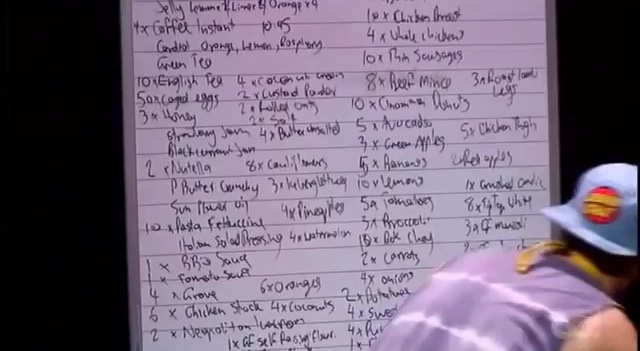 Jelly Lemon & Lime & Orange x 4
4x Coffee Instant 10.45
Cordial Orange, Lemon, Raspberry
Green Tea
10 x English Tea 4 x Coconut cream
50 x caged eggs 2 x Custard Powder
3 x Honey 2 x Rolled oats
2 x Salt
Strawberry Jam 4 x Butter unsalted
Blackcurrant Jam
2 x Nutella 8 x Cauliflowers
P Butter Crunchy 3 x Iceberg lettuce
Sun flower oil
4 x Pineapples
10 x Pasta Fettuccine
Italian Salad Dressing 4 x Watermelon
1 x BBQ Sauce
1 x Tomato Sauce
4 x Gravy 6 x Oranges
6 x Chicken Stock 4 x Coconuts
2 x Neapolitan
1 x GF Self Raising flour.
10 x Chicken Breast
4 x Whole chickens
10 x Thin Sausages
8 x Beef Mince 3 x Roast lamb Legs
10 x Cinnamon Donuts
5 x Avocados 5 x Chicken Thigh
3 x Green Apples
5 x Bananas 2 Red apples
10 x Lemons 1 x crushed Garlic
5 x Tomatoes 8 x Tip Top White
3 x Broccoli 3 x GF muesli
10 x Bok Choy
2 x Carrots
4 x onions
2 x Potatoes
4 x Sweet
4 x
1 x